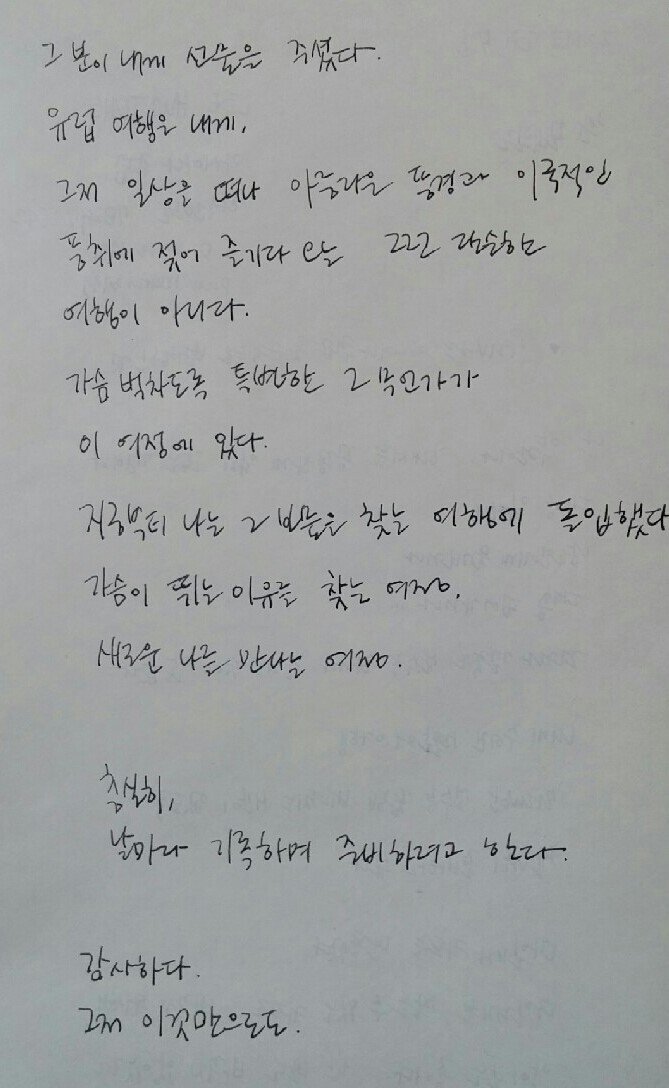 그 분이 내게 선물을 주셨다.
유럽 여행은 내게,
그저 일상을 떠나 아름다운 풍경과 이국적인
풍취에 젖어 즐기다 오는 그런 단순한
여행이 아니다.
가슴 벅차도록 특별한 그 무언가가
이 여정에 있다.
지금부터 나는 그 보물을 찾는 여행에 돌입했다
가슴이 뛰는 이유를 찾는 여정.
새로운 나를 만나는 여정.
충실히,
날마다 기록하며 준비하려고 한다.
감사하다.
그저 이것만으로도.